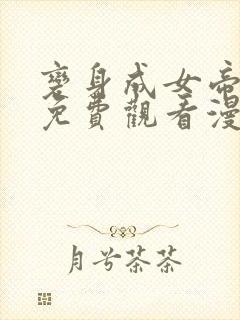 變身成女帝
免費觀看漫
月兮茶茶